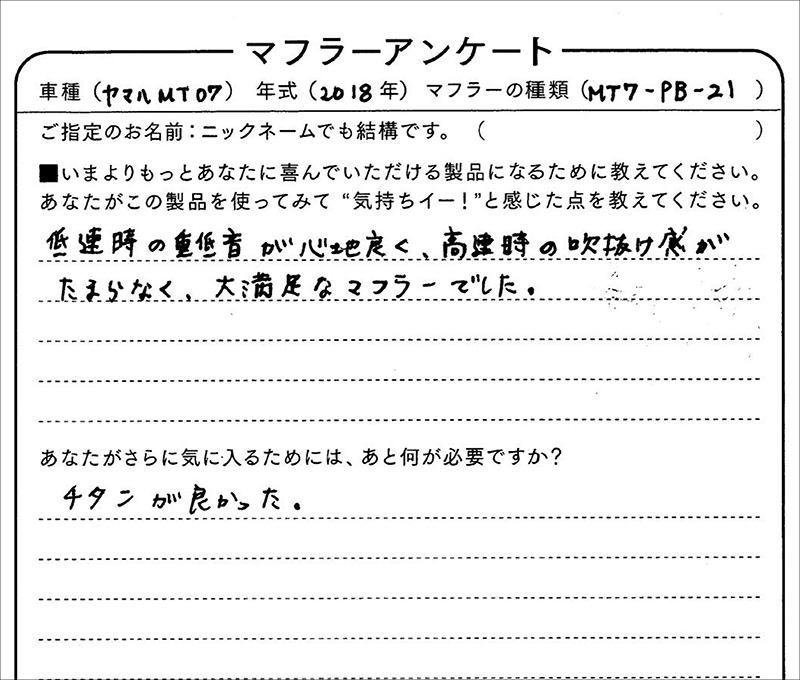 マフラーアンケート
車種(ヤマハMT07) 年式(2018年) マフラーの種類(MT7-PB-21 )
ご指定のお名前:ニックネームでも結構です。( )
■いまよりもっとあなたに喜んでいただける製品になるために教えてください。
あなたがこの製品を使ってみて“気持ちイー!”と感じた点を教えてください。
低速時の重低音が心地良く、高速時の吹抜け感が
たまらなく、大満足なマフラーでした。
あなたがさらに気に入るためには、あと何が必要ですか?
チタンが良かった。